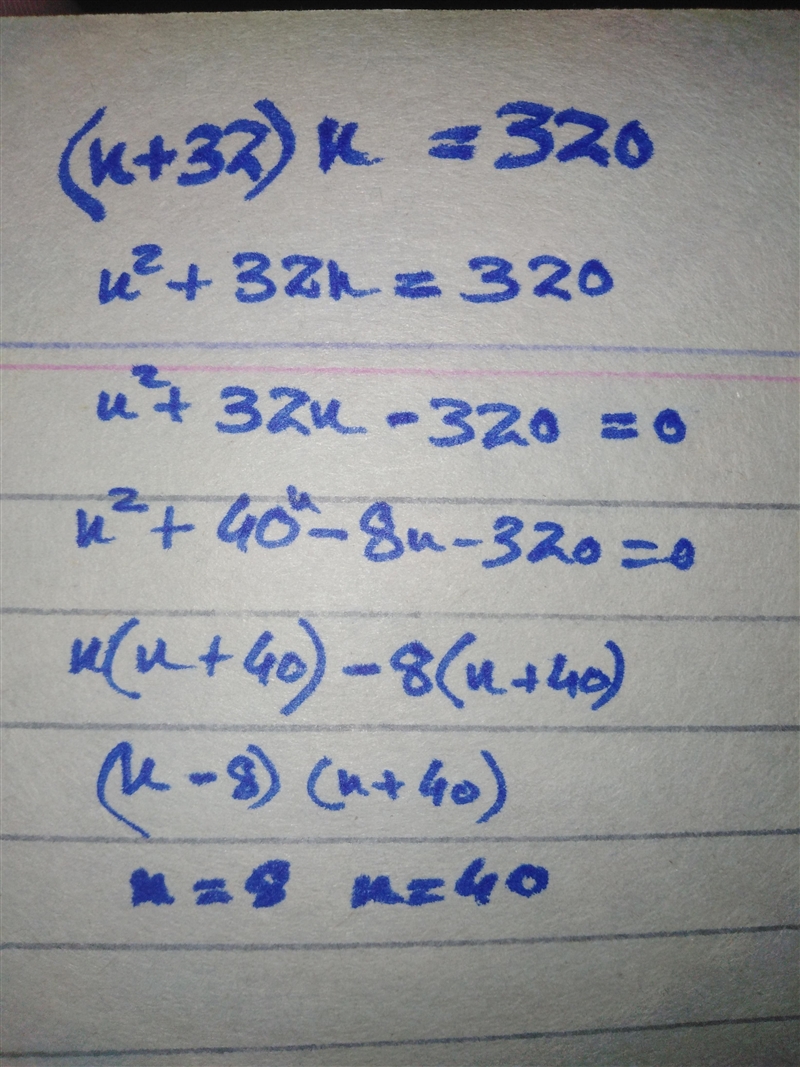 (x+32) x = 320
x² + 32x = 320
x² + 32x - 320 = 0
x² + 40x - 8x - 320 = 0
x(x + 40) - 8(x + 40)
(x - 8) (x + 40)
x = 8 x = 40